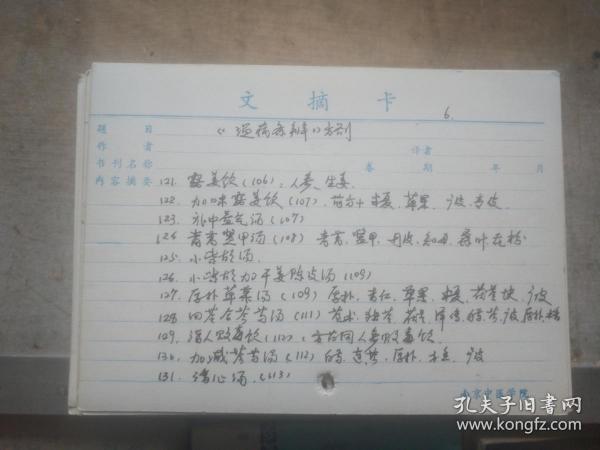 文摘卡
6.
题目 《温病条辨》方剂
作者 译者
书刊名称 卷 期 年 月
内容摘要 121. 露姜饮(106):人参、生姜
122. 加味露姜饮(107).前方+半夏、草果、广皮、青皮
123. 补中益气汤(107)
124 青蒿鳖甲汤(108) 青蒿、鳖甲、丹皮、知母、桑叶、花粉
125. 小柴胡汤.
126. 小柴胡加干姜陈皮汤(109)
127. 厚朴草果汤(109) 厚朴、杏仁、草果、半夏、茯苓块、广皮
128 四苓合芩芍汤(111) 苍术、猪苓、茯苓、泽泻、白芍、广皮、厚朴、木香
129. 活人败毒饮(112):方药同人参败毒饮
130. 加减芩芍汤(112) 白芍、黄芩、厚朴、木香、广皮
131. 泻心汤.(113)
南京中医学院
孔夫子旧书网
www.kongfz.com